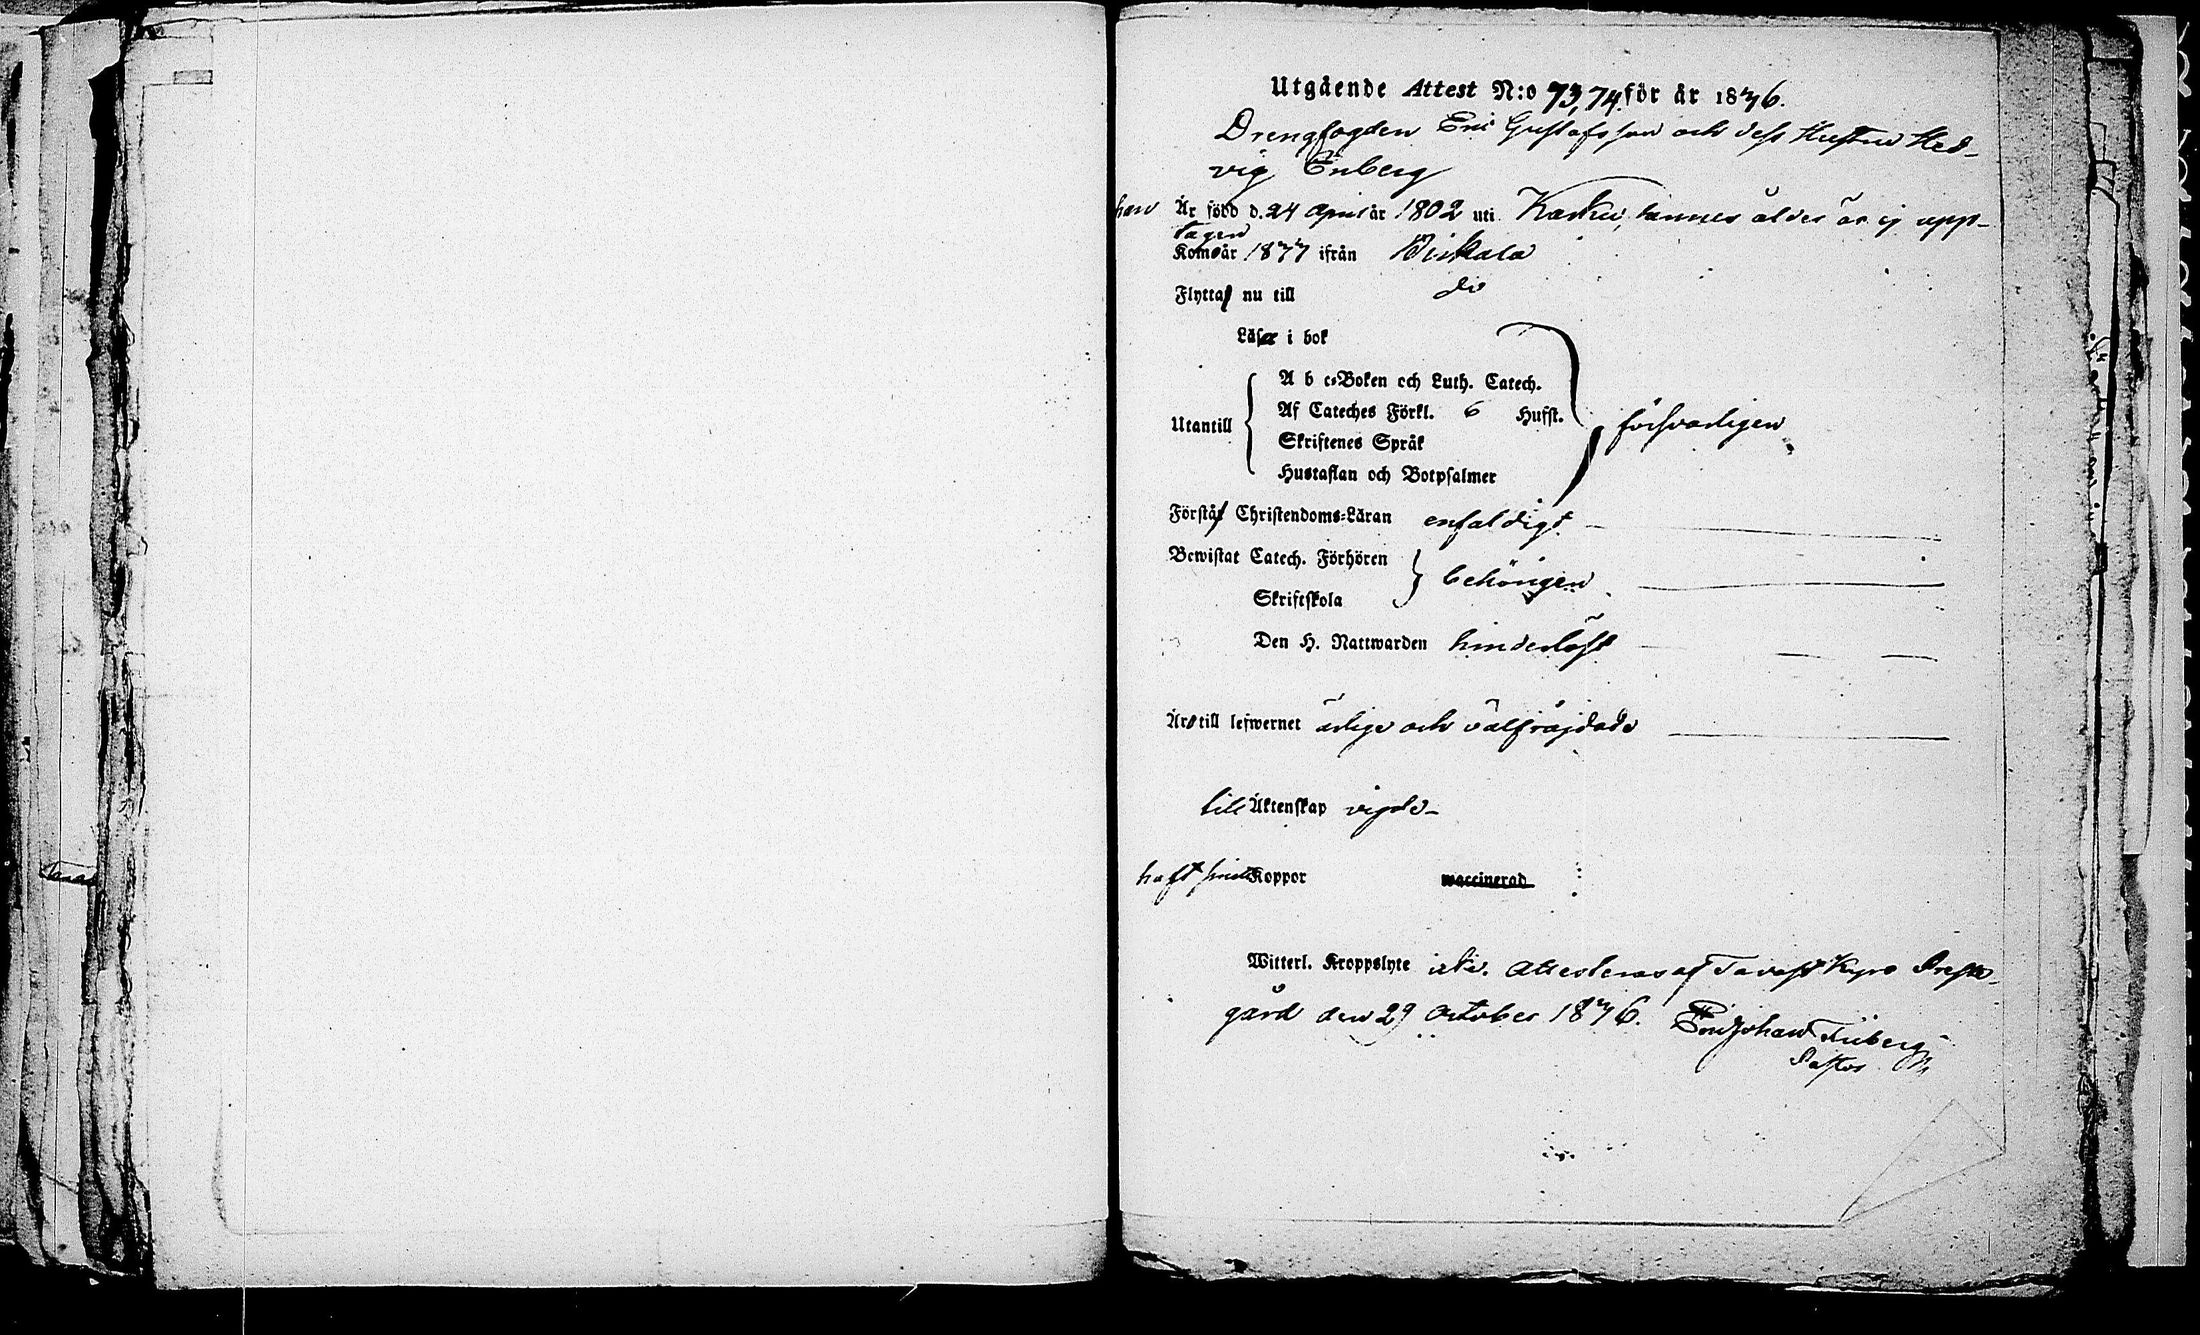 Utgående Attest N:o 73,74 för år 1876.
Drengfogden Eric Gustafsson och dess Hustru Hed-
vig Enberg
han Är född d. 24 April år 1802 uti Karku, hennes ålder är ej upp-
tagen
Kom år 1877 ifrån Birkala
Flytta nu till do
Läsa i bok
A b c-Boken och Luth. Catech.
Af Cateches Förkl. 6 Hufst.
Utantill
försvarligen
Skriftenes Språk
Hustaflan och Botpsalmer
Förstå Christendoms-Läran enfaldigt
Bewistat Catech. Förhören
behörigen
Skriftskola
Den H. Nattwarden hinderlöst
Är till lefwernet ärlige och välfräjdade
till Äktenskap vigde
haft Koppor waccinerad
Witterl. Kroppslyte icke. Attesteras af Tavast Kyro Prest-
gård den 29 October 1876. Johan
Pastor